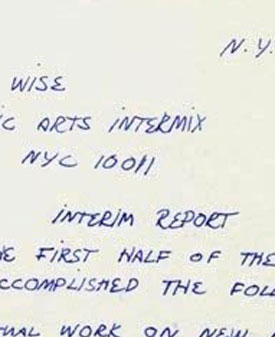 N.Y.
WISE
IC ARTS INTERMIX
NYC 10011
INTERIM REPORT
HE FIRST HALF OF THE
CCOMPLISHED THE FOLL
TUAL WORK ON NEW